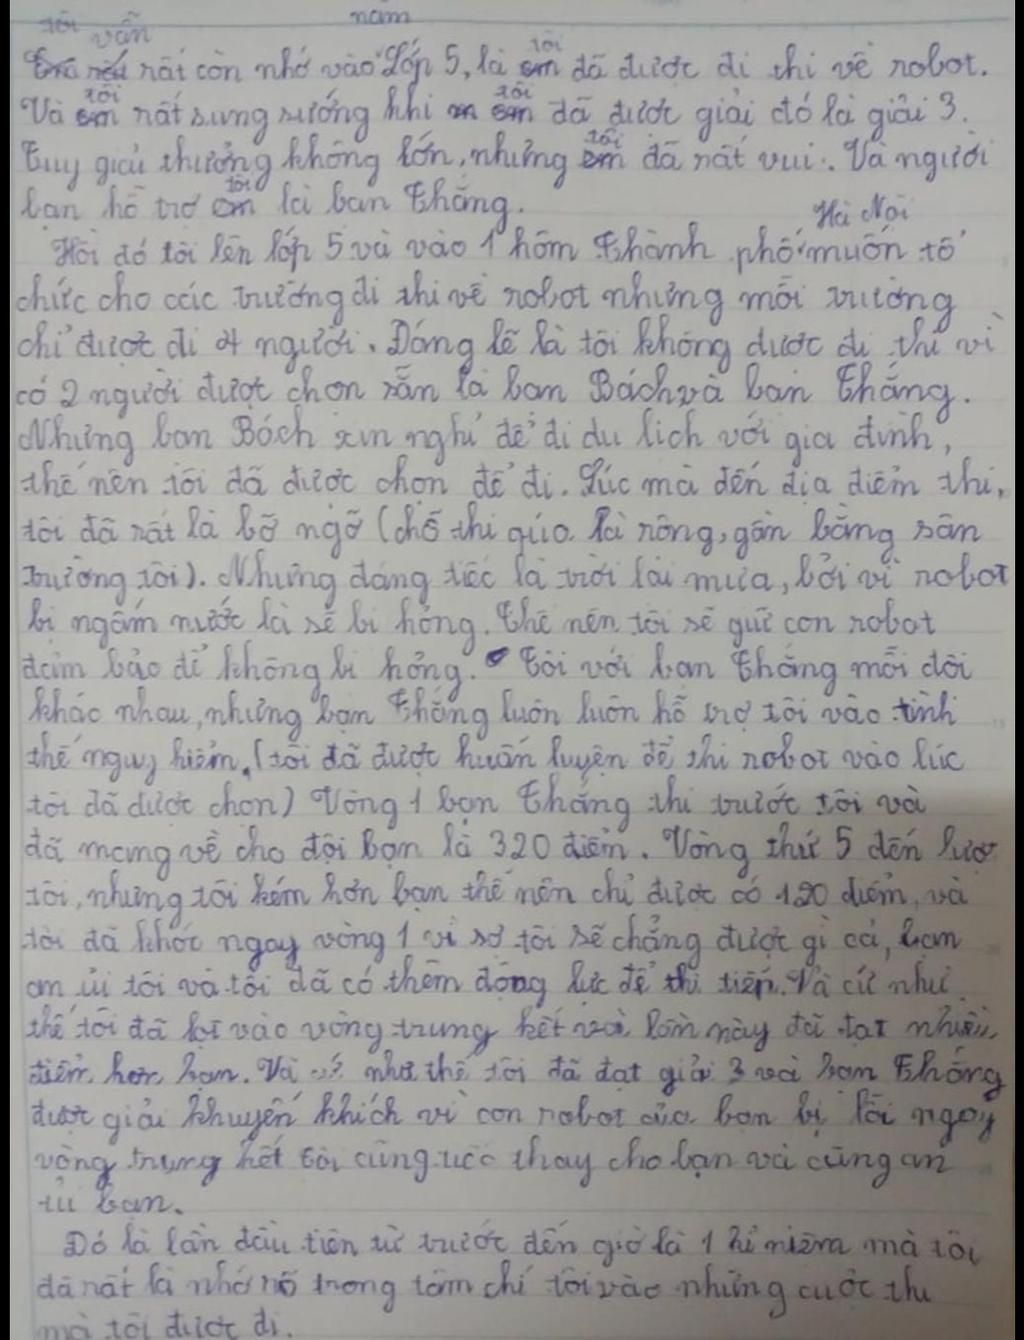 tôi vẫn năm
rất còn nhớ vào lớp 5, là em tôi đã được đi thi về robot.
Và em tôi rất sung sướng khi em tôi đã được giải đó là giải 3.
Tuy giải thưởng không lớn, nhưng em tôi đã rất vui. Và người
bạn hỗ trợ em tôi là bạn Thắng.
Hồi đó tôi lên lớp 5 và vào 1 hôm Thành phố Hà Nội muốn tổ
chức cho các trường đi thi về robot nhưng mỗi trường
chỉ được đi 4 người. Đáng lẽ là tôi không được đi thi vì
có 2 người được chọn sẵn là bạn Bách và bạn Thắng.
Nhưng bạn Bách xin nghỉ để đi du lịch với gia đình,
thế nên tôi đã được chọn để đi. Lúc mà đến địa điểm thi,
tôi đã rất là bỡ ngỡ (chỗ thi quá là rộng, gần bằng sân
trường tôi). Nhưng đáng tiếc là trời lại mưa, bởi vì robot
bị ngấm nước là sẽ bị hỏng. Thế nên tôi sẽ giữ con robot
đảm bảo để không bị hỏng. Tôi với bạn Thắng mỗi đội
khác nhau, nhưng bạn Thắng luôn luôn hỗ trợ tôi vào tình
thế nguy hiểm. (tôi đã được huấn luyện để thi robot vào lúc
tôi đã được chọn) Vòng 1 bạn Thắng thi trước tôi và
đã mang về cho đội bạn là 320 điểm. Vòng thứ 5 đến lượt
tôi, nhưng tôi kém hơn bạn thế nên chỉ được có 120 điểm, và
tôi đã khóc ngay vòng 1 vì sợ tôi sẽ chẳng được gì cả, bạn
an ủi tôi và tôi đã có thêm động lực để thi tiếp. Và cứ như
thế tôi đã lọt vào vòng trung kết và lần này đã đạt nhiều
điểm hơn bạn. Và cứ như thế tôi đã đạt giải 3 và bạn Thắng
được giải khuyến khích vì con robot của bạn bị lỗi ngay
vòng trung kết tôi cũng thay cho bạn và cũng an
ủi bạn.
Đó là lần đầu tiên từ trước đến giờ là 1 kỉ niệm mà tôi
đã rất là nhớ rõ trong tâm chí tôi vào những cuộc thi
mà tôi được đi.